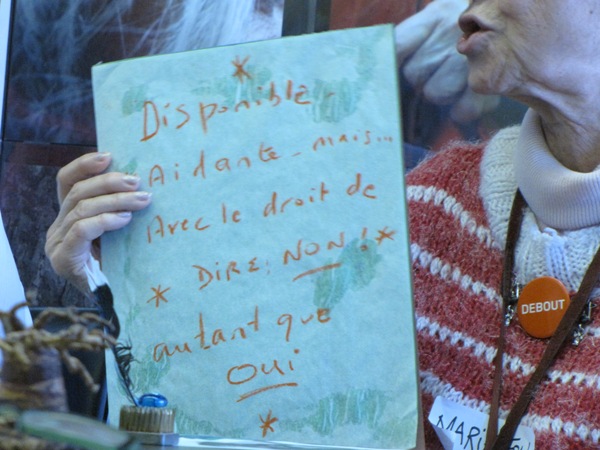 *
Disponible -
Aidante - mais...
Avec le droit de
* DIRE, NON ! *
autant que
OUI
*
DEBOUT